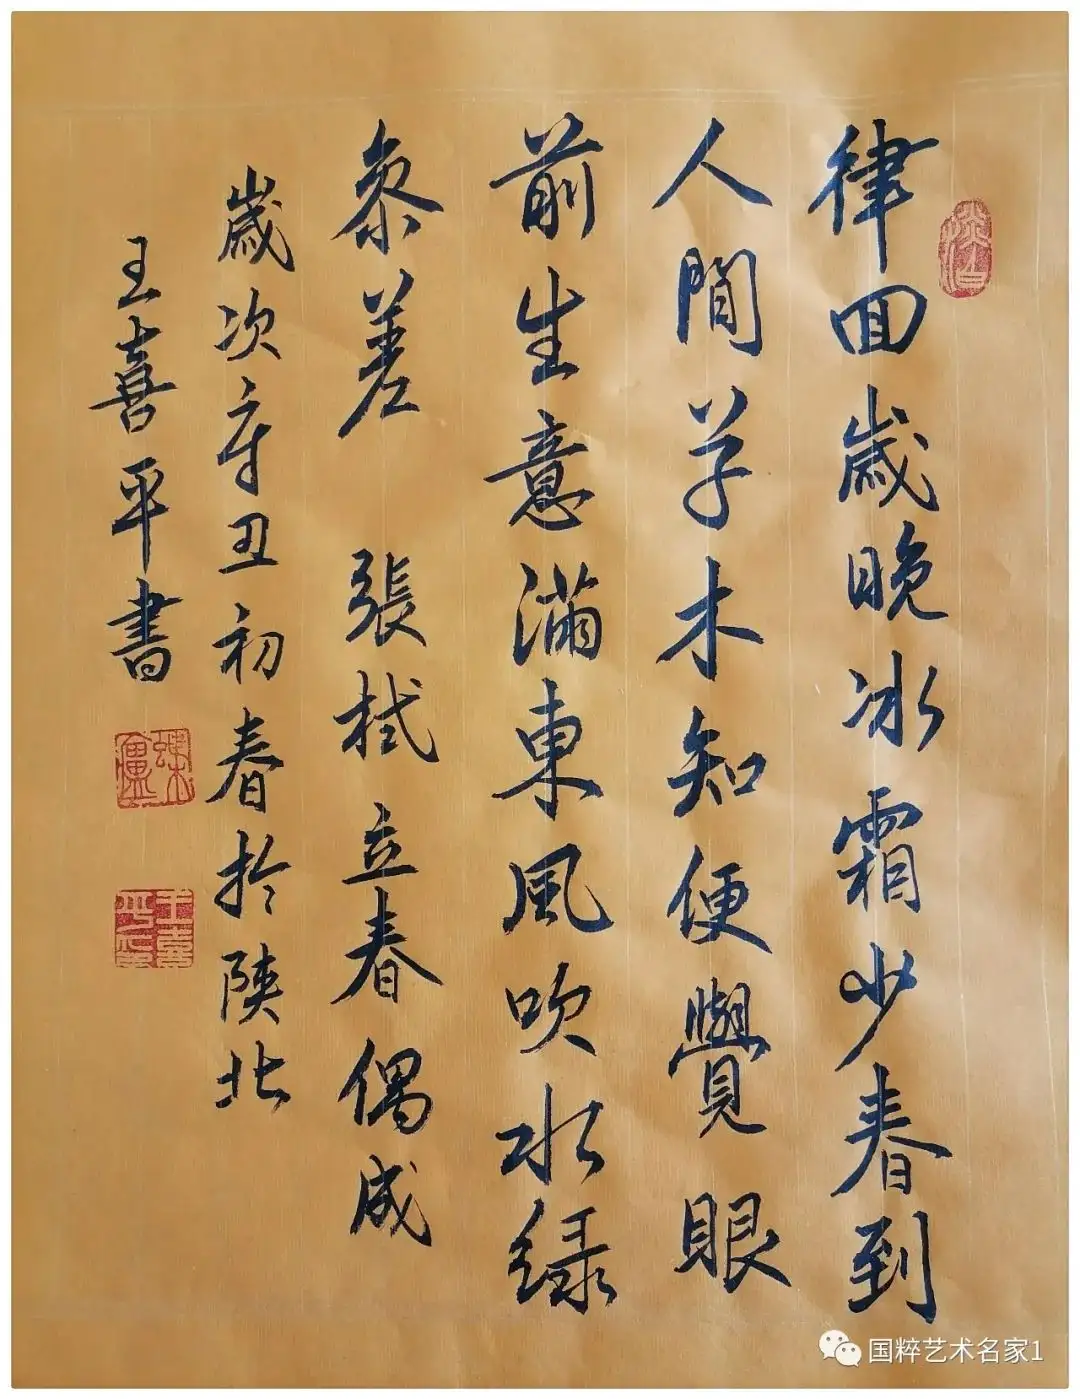 律回歲晚冰霜少春到
人間草木知便覺眼
前生意滿東風吹水緑
參差 張栻 立春偶成
歲次辛丑初春於陝北
王喜平書
国粹艺术名家1